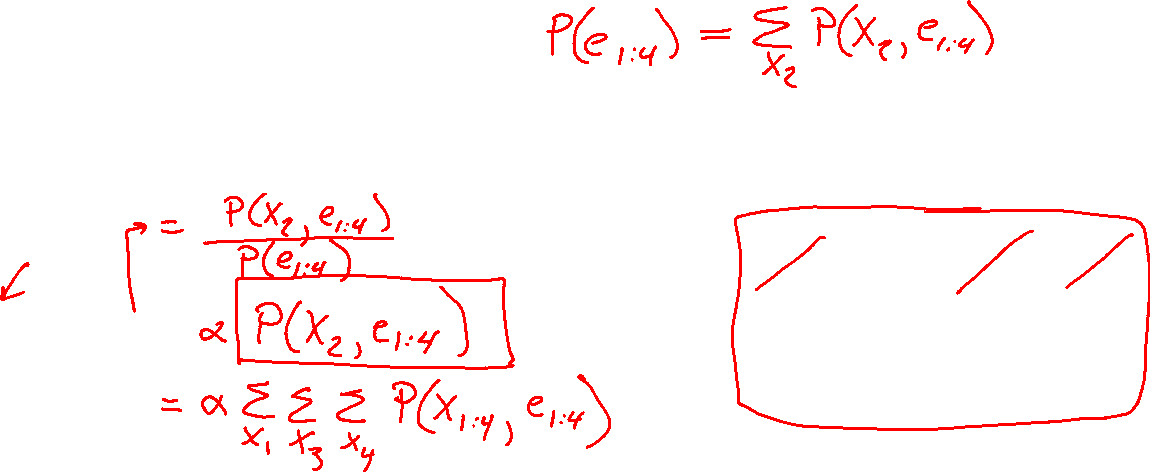 P(e_{1:4}) = ∑_{X_2} P(X_2, e_{1:4})
= P(X_2, e_{1:4}) / P(e_{1:4})
α P(X_2, e_{1:4})
= α ∑_{X_1} ∑_{X_3} ∑_{X_4} P(X_{1:4}, e_{1:4})